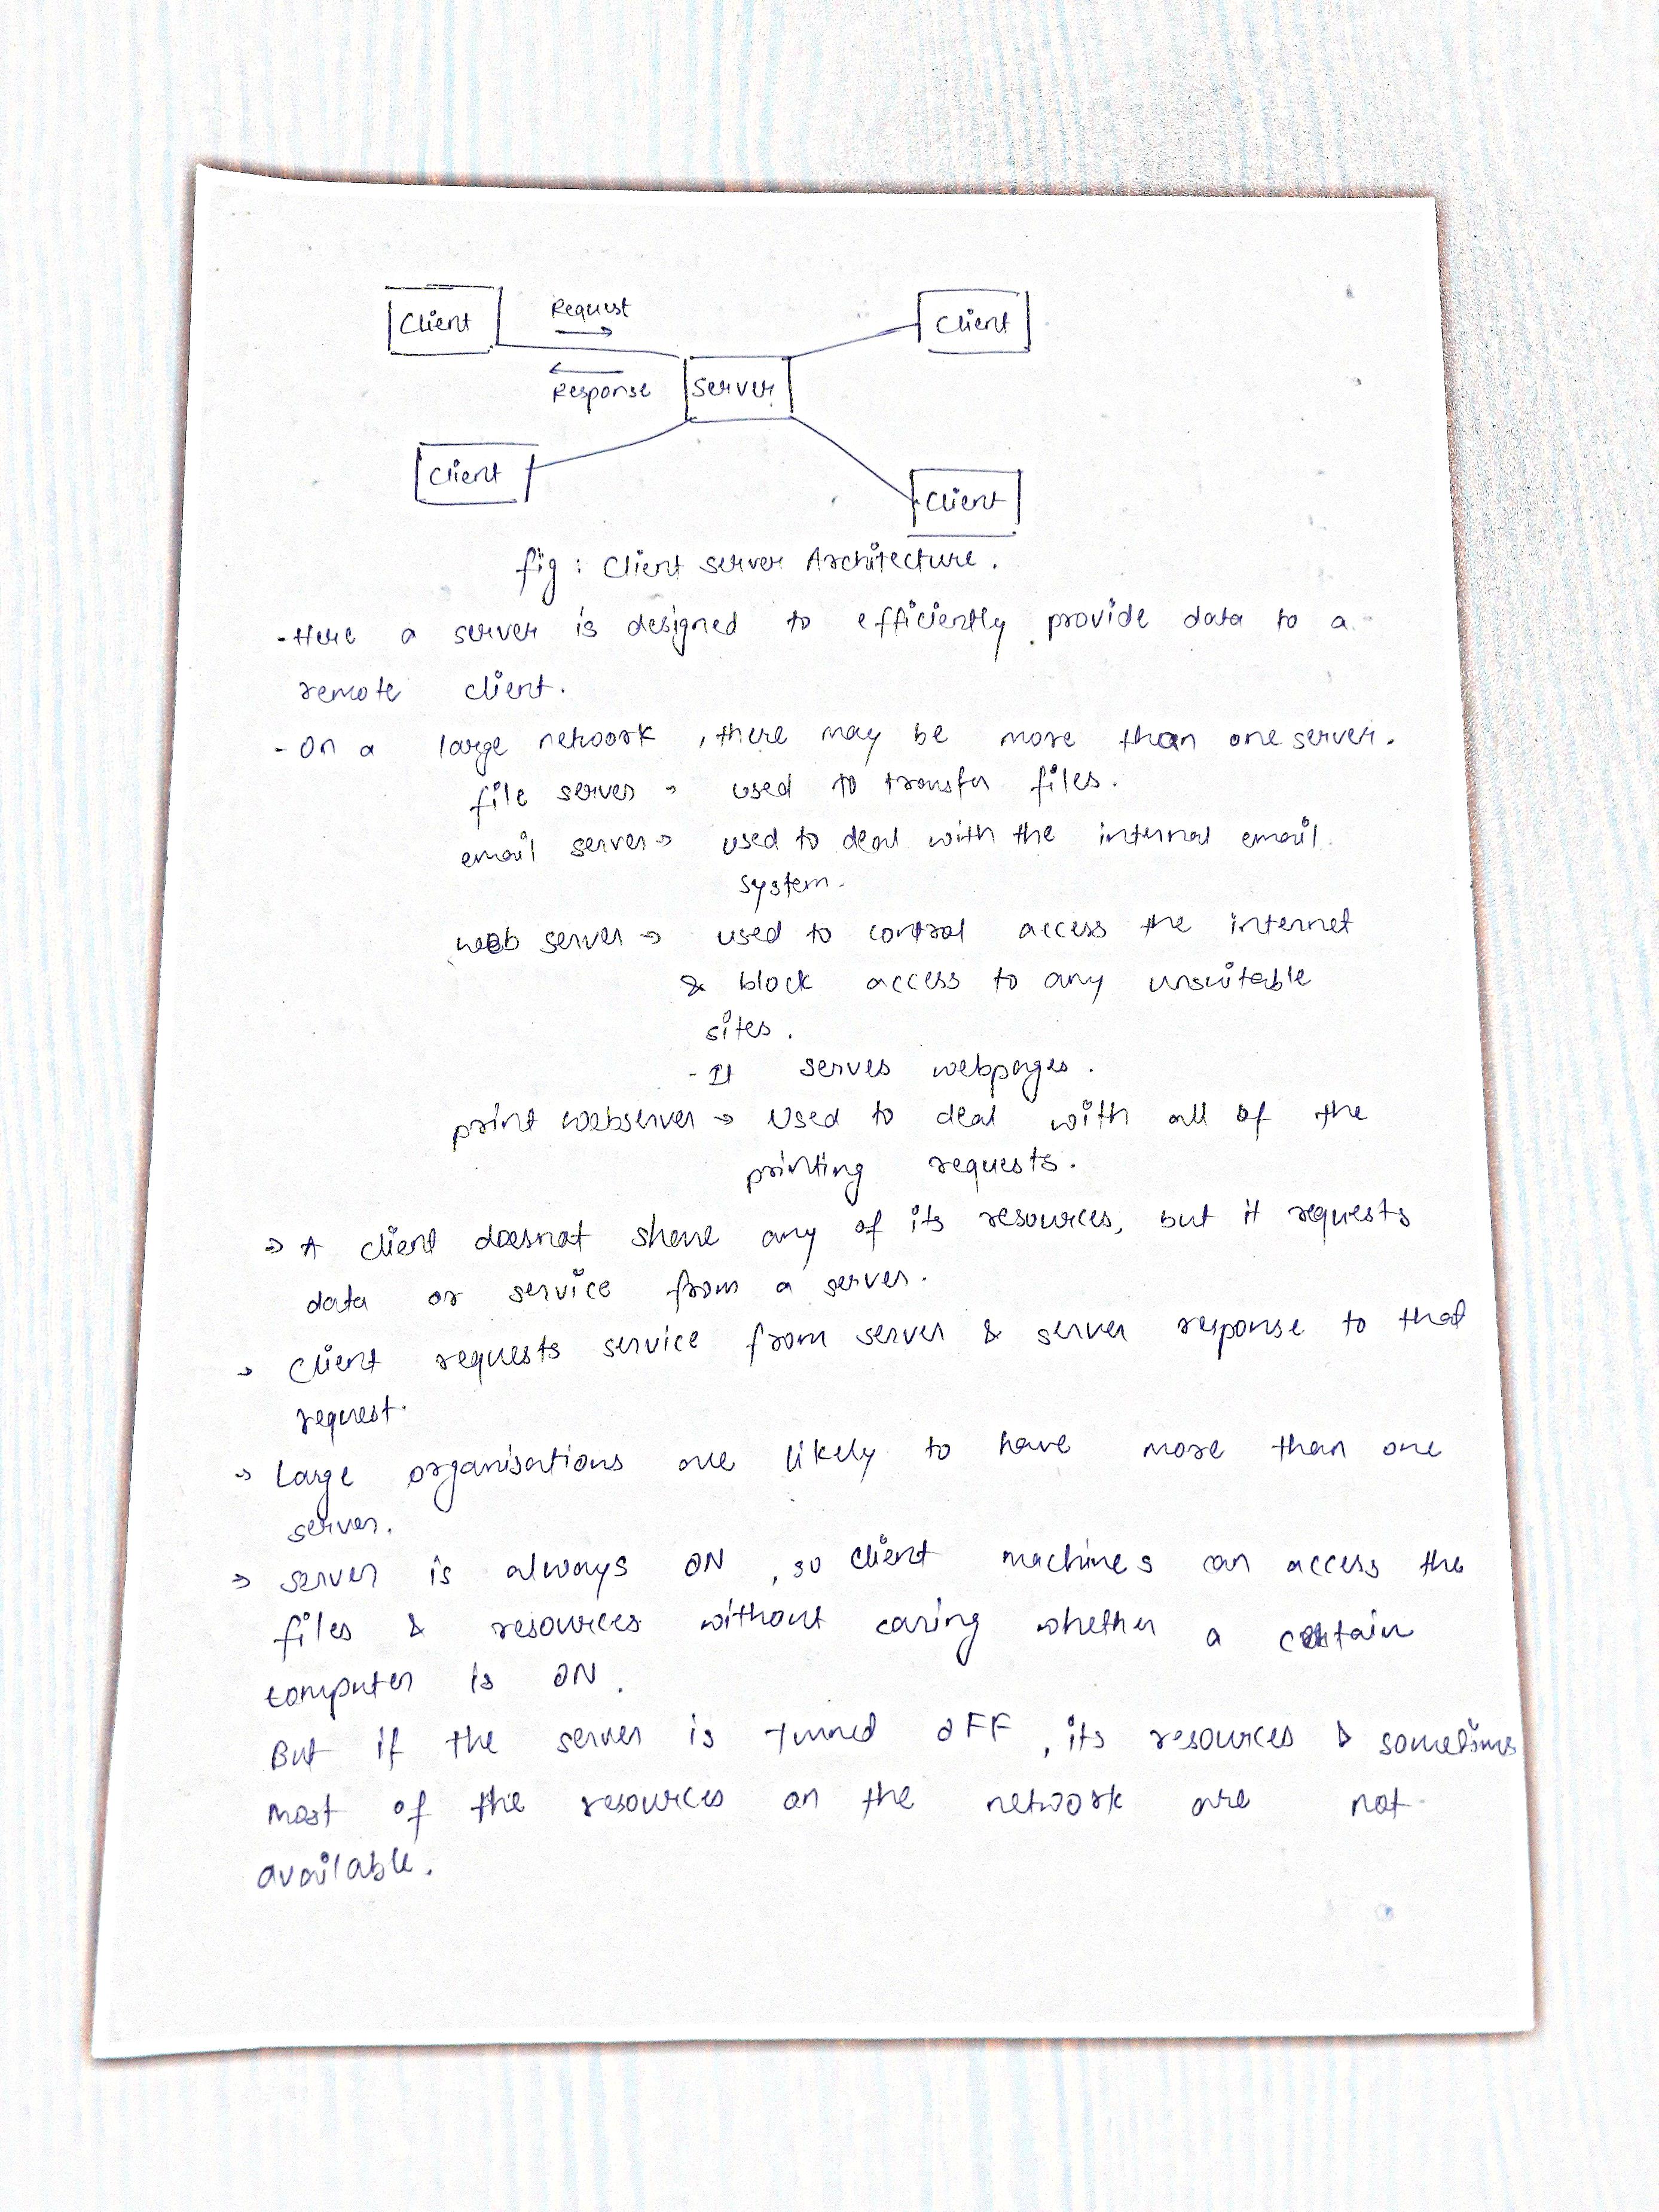 Client
Request
Client
Response
Server
Client
Client
fig : Client server Architecture.
- Here a server is designed to efficiently provide data to a
remote client.
- On a large network , there may be more than one server.
file server → used to transfer files.
email server → used to deal with the internal email
system.
web server → used to control access the internet
& block access to any unsuitable
sites.
- It serves webpages.
print webserver → Used to deal with all of the
printing requests.
→ A client doesnot share any of its resources, but it requests
data or service from a server.
→ Client requests service from server & server response to that
request.
→ Large organisations are likely to have more than one
server.
→ server is always ON , so client machines can access the
files & resources without caring whether a certain
computer is ON.
But if the server is turned OFF , its resources & sometimes
most of the resources on the network are not
available.